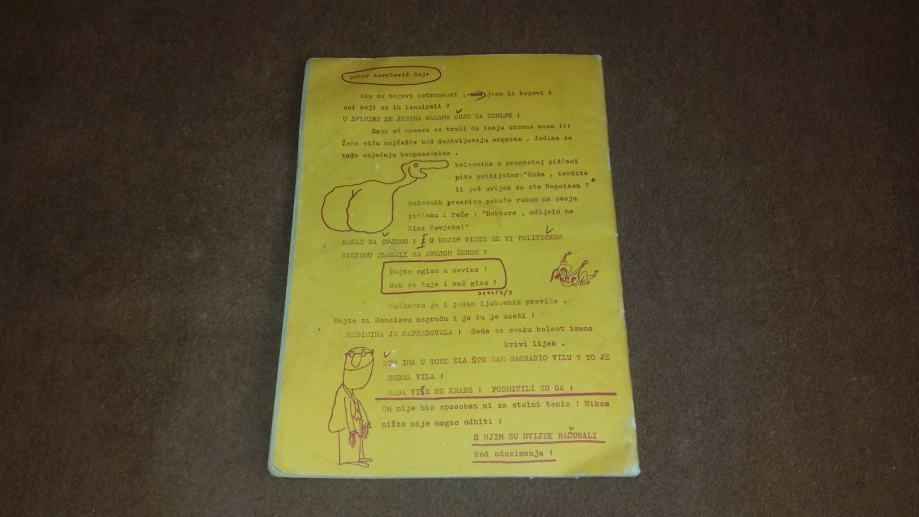 petar kovačević daje
Ako su bogovi astronauti , jesu li bogovi i
oni koji su ih lansirali ?
U SVEMIRU SE JEDINA GALAMA ČUJE SA ZEMLJE !
Samo od mesara se traži da imaju ukusno meso !!!
Žene viču najčešće kad doživljavaju orgazam . Jedino se
tada osjećaju bespomoćnima .
bolesnika u prugastoj pidžami
pita psihijatar:"Onda , tvrdite
li još uvijek da ste Napoleon ?
bolesnik prezrivo pokaže rukom na svoju
pidžamu i reče : "Doktore , odijelo ne
čini čovjeka!"
DAKLE DA ČUJEMO ! I U KOJEM BISTE SE VI POLITIČKOM
SISTEMU SLAGALI SA SVOJOM ŽENOM ?
Dajte oglas u novine !
Nek se čuje i vaš glas !
Muškarcu je i jedan ljubavnik previše .
Dajte mi Nobelovu nagradu i ja ću je uzeti !
MEDICINA JE NAPREDOVALA ! Sada za svaku bolest imamo
krivi lijek .
ŠTO IMA U TOME ZLA ŠTO SAM SAGRADIO VILU ? TO JE
DOBRA VILA !
SADA VIŠE NE KRADE ! PODMITILI SU GA !
On nije bio sposoban ni za stolni tenis ! Nikom
ništa nije mogao odbiti !
S NJIM SU UVIJEK RAČUNALI
kod oduzimanja !